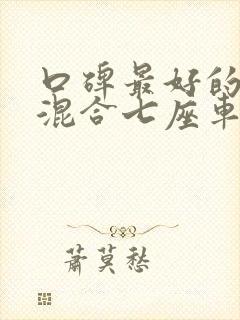 口碑最好的
混合七座车
萧莫愁